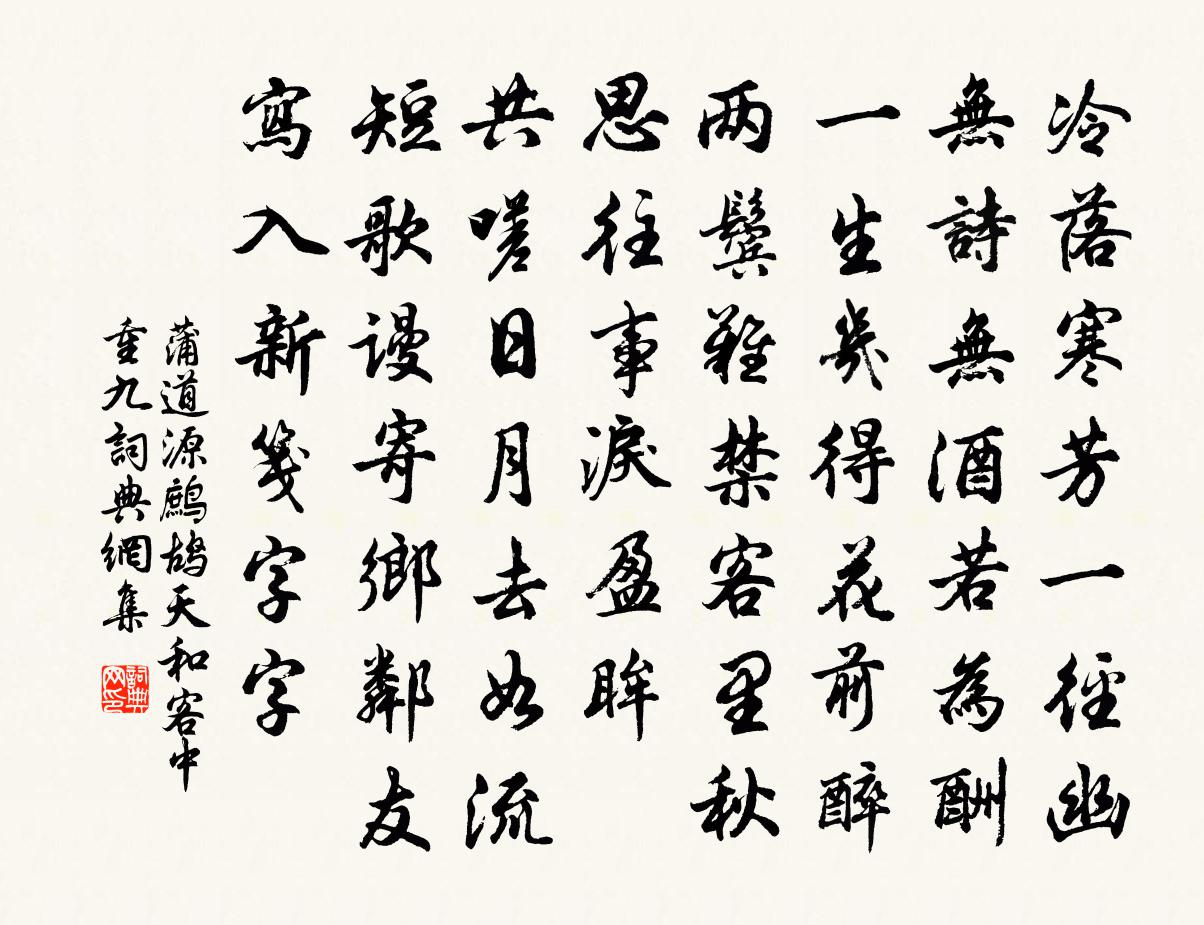 冷落寒芳一徑幽
無詩無酒若為酬
一生幾得花前醉
两鬓難禁客里秋
思往事淚盈眸
共嗟日月去如流
短歌謾寄鄉鄰友
寫入新箋字字
蒲道源鷓鴣天和客中
重九詞典網集
詞典
网印